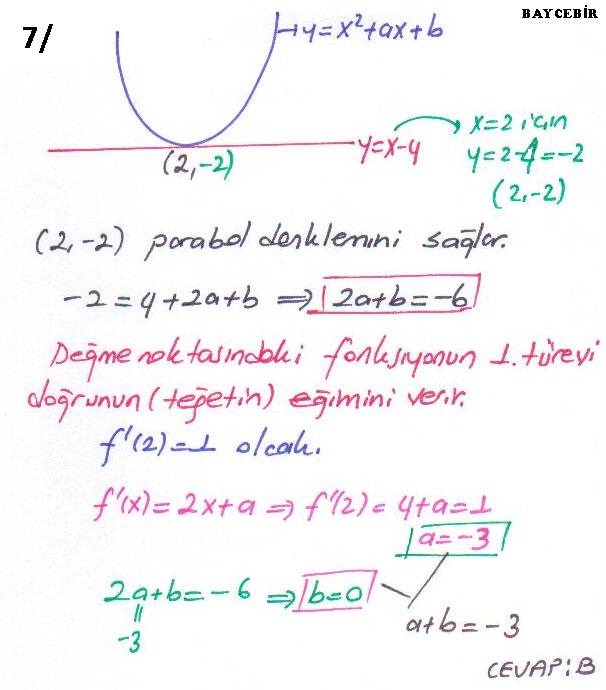 BAYCEBİR
7/
y=x²+ax+b
y=x-4
x=2 için
y=2-4=-2
(2,-2)
(2,-2)
(2,-2) parabol denklemini sağlar.
-2=4+2a+b ⇒ 2a+b=-6
Değme noktasındaki fonksiyonun 1. türevi
doğrunun (teğetin) eğimini verir.
f'(2)=1 olcak.
f'(x)=2x+a ⇒ f'(2)=4+a=1
a=-3
2a+b=-6 ⇒ b=0
-3
a+b=-3
CEVAP: B